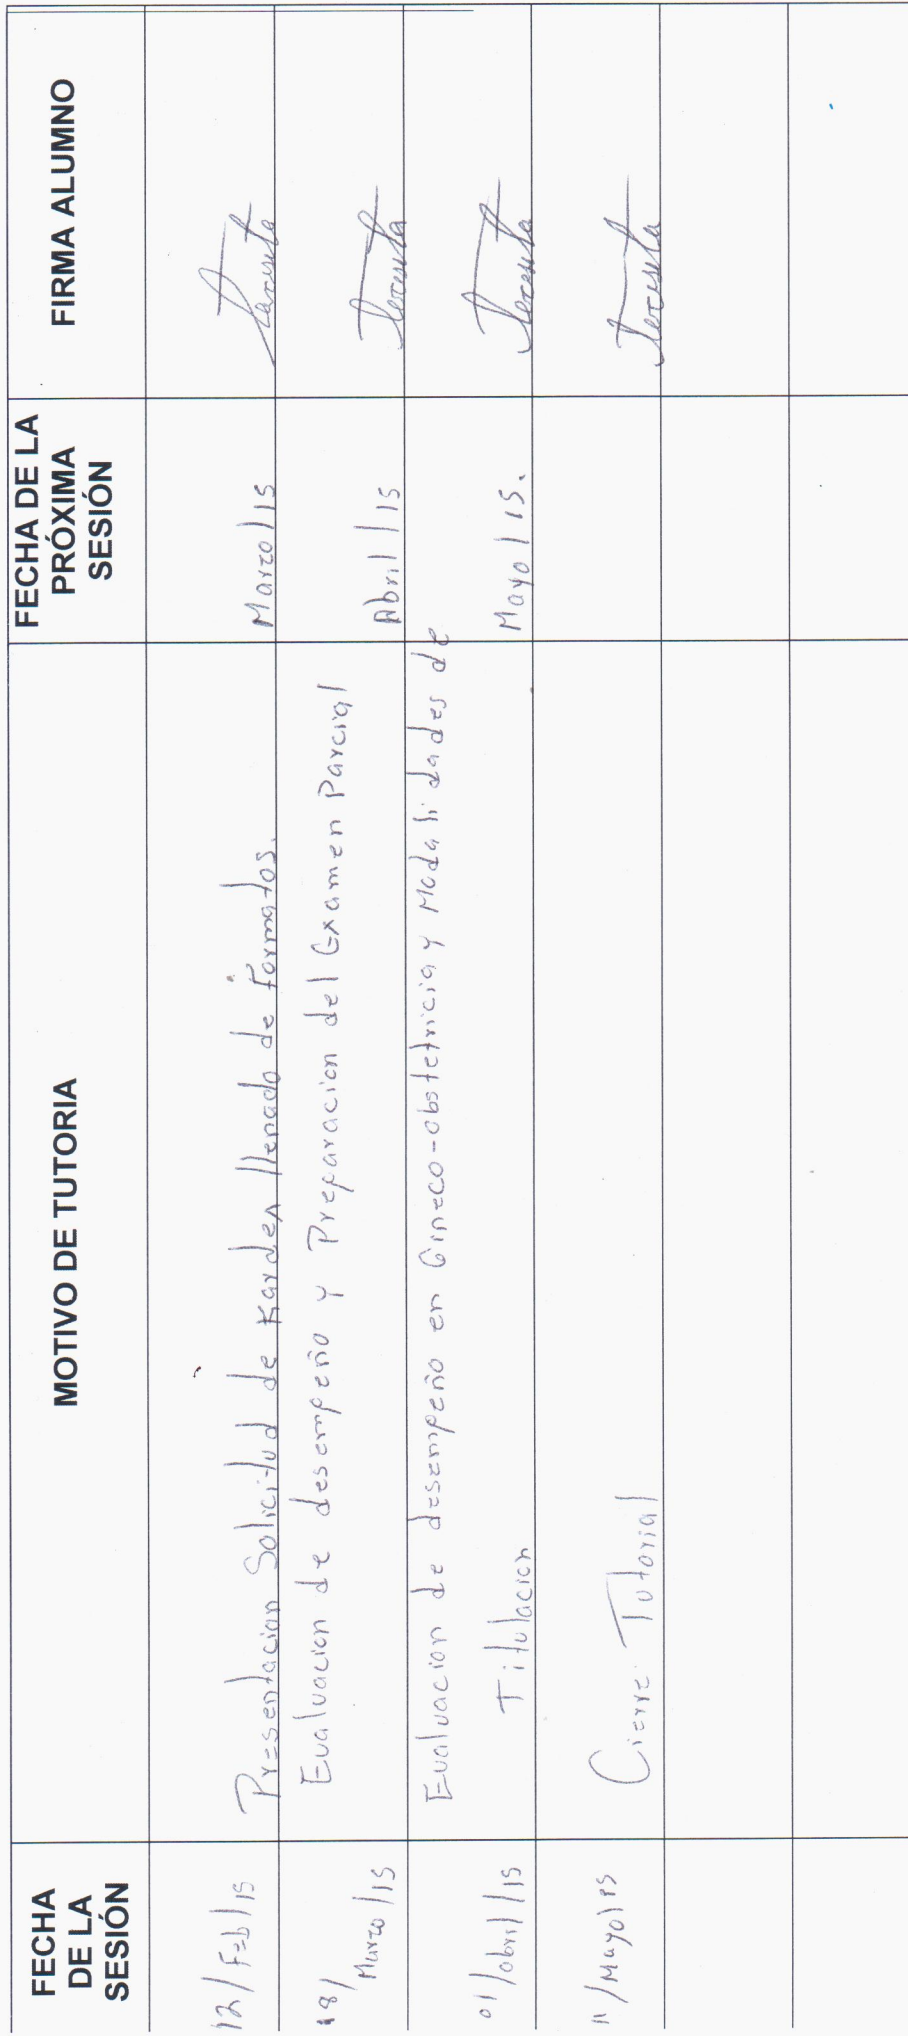 FECHA DE LA SESIÓN
MOTIVO DE TUTORIA
FECHA DE LA PRÓXIMA SESIÓN
FIRMA ALUMNO
12/Feb/15
Presentacion Solicitud de Kardex llenado de Formatos.
Marzo/15
18/Marzo/15
Evaluacion de desempeño y Preparacion del Examen Parcial
Abril/15
01/abril/15
Evaluacion de desempeño en Gineco-obstetricia y Modalidades de
Titulacion
Mayo/15.
11/Mayo/15
Cierre Tutorial